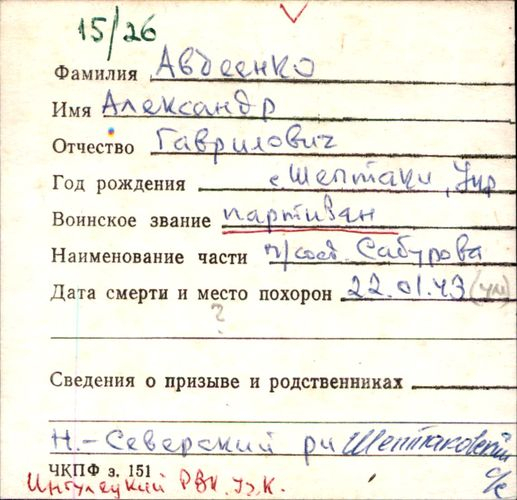 15/26
Фамилия Авдеенко
Имя Александр
Отчество Гаврилович
Год рождения с. Шептаки, Укр
Воинское звание партизан
Наименование части п/соед. Сабурова
Дата смерти и место похорон 22.01.43 (ум)
?
Сведения о призыве и родственниках
Н.-Северский р-н Шептаковский с/с
ЧКПФ з. 151
Ингулецкий РВК,